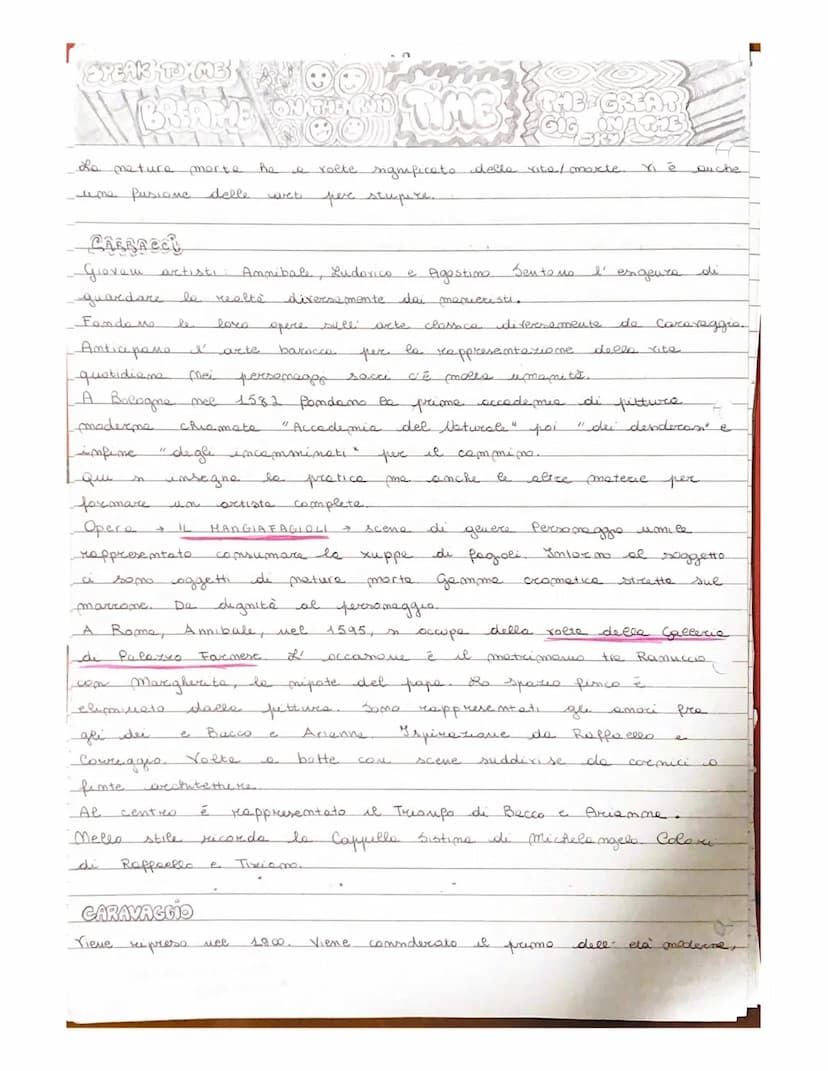 SPEAK TO ME BREATHE ON THE RUN TIME THE GREAT GIG IN THE SKY
La natura morta ha a volte significato della vita/morte. Vi è anche
una fusione delle arti per stupire.
CARRACCI
Giovani artisti: Annibale, Ludovico e Agostino. Sentono l'esigenza di
guardare la realtà diversamente dai manieristi.
Fondano le loro opere sull'arte classica diversamente da Caravaggio.
Anticipano l'arte barocca per la rappresentazione della vita
quotidiana. Nei personaggi sacri c'è molta umanità.
A Bologna nel 1582 fondano la prima accademia di pittura
moderna chiamata "Accademia del Naturale" poi "dei desiderosi" e
infine "degli incamminati" per il cammino.
Qui si insegna la pratica ma anche le altre materie per
formare un artista completo.
Opera → IL MANGIAFAGIOLI → scena di genere. Personaggio umile
rappresentato consumare la zuppa di fagioli. Intorno al soggetto
ci sono oggetti di natura morta. Gamma cromatica stretta sul
marrone. Da dignità al personaggio.
A Roma, Annibale, nel 1595, si occupa della volta della Galleria
di Palazzo Farnese. L'occasione è il matrimonio tra Ranuccio
con Margherita, la nipote del papa. Lo spazio fisico è
eliminato dalla pittura. Sono rappresentati gli amori fra
gli dei e Bacco e Arianna. Ispirazione da Raffaello e
Correggio. Volta a botte con scene suddivise da cornici o
finte architetture.
Al centro è rappresentato il Trionfo di Bacco e Arianna.
Nello stile ricorda la Cappella Sistina di Michelangelo. Colori
di Raffaello e Tiziano.
CARAVAGGIO
Viene ripreso nel 1900. Viene considerato il primo dell'età moderna,